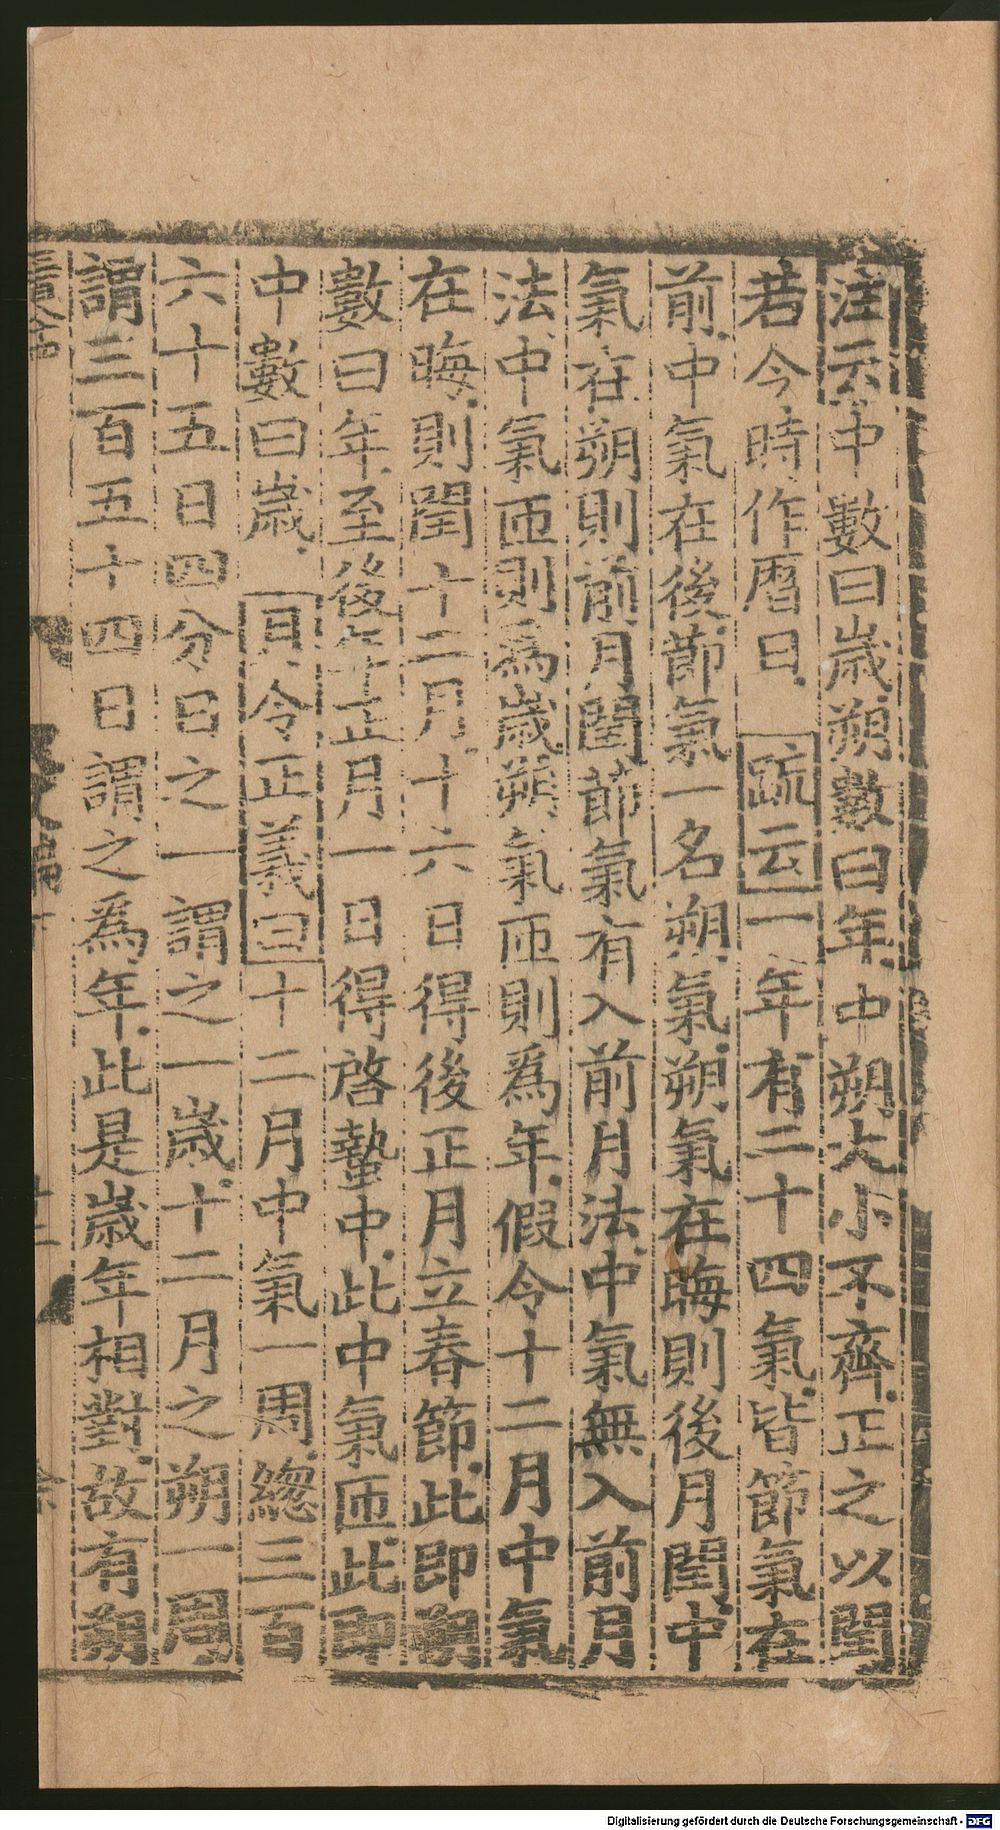 注云中數曰歲朔數曰年中朔大小不齊正之以閏
若今時作曆日疏云一年有二十四氣皆節氣在
前中氣在後節氣一名朔氣朔氣在晦則後月閏中
氣在朔則前月閏節氣有入前月法中氣無入前月
法中氣匝則爲歲朔氣匝則爲年假令十二月中氣
在晦則閏十二月十六日得後正月立春節此即朔
數曰年至後年正月一日得啓蟄中此中氣匝此即
中數曰歲月令正義曰十二月中氣一周總三百
六十五日四分日之一謂之一歲十二月之朔一周
謂三百五十四日謂之爲年此是歲年相對故有朔
Digitalisierung gefördert durch die Deutsche Forschungsgemeinschaft - DFG